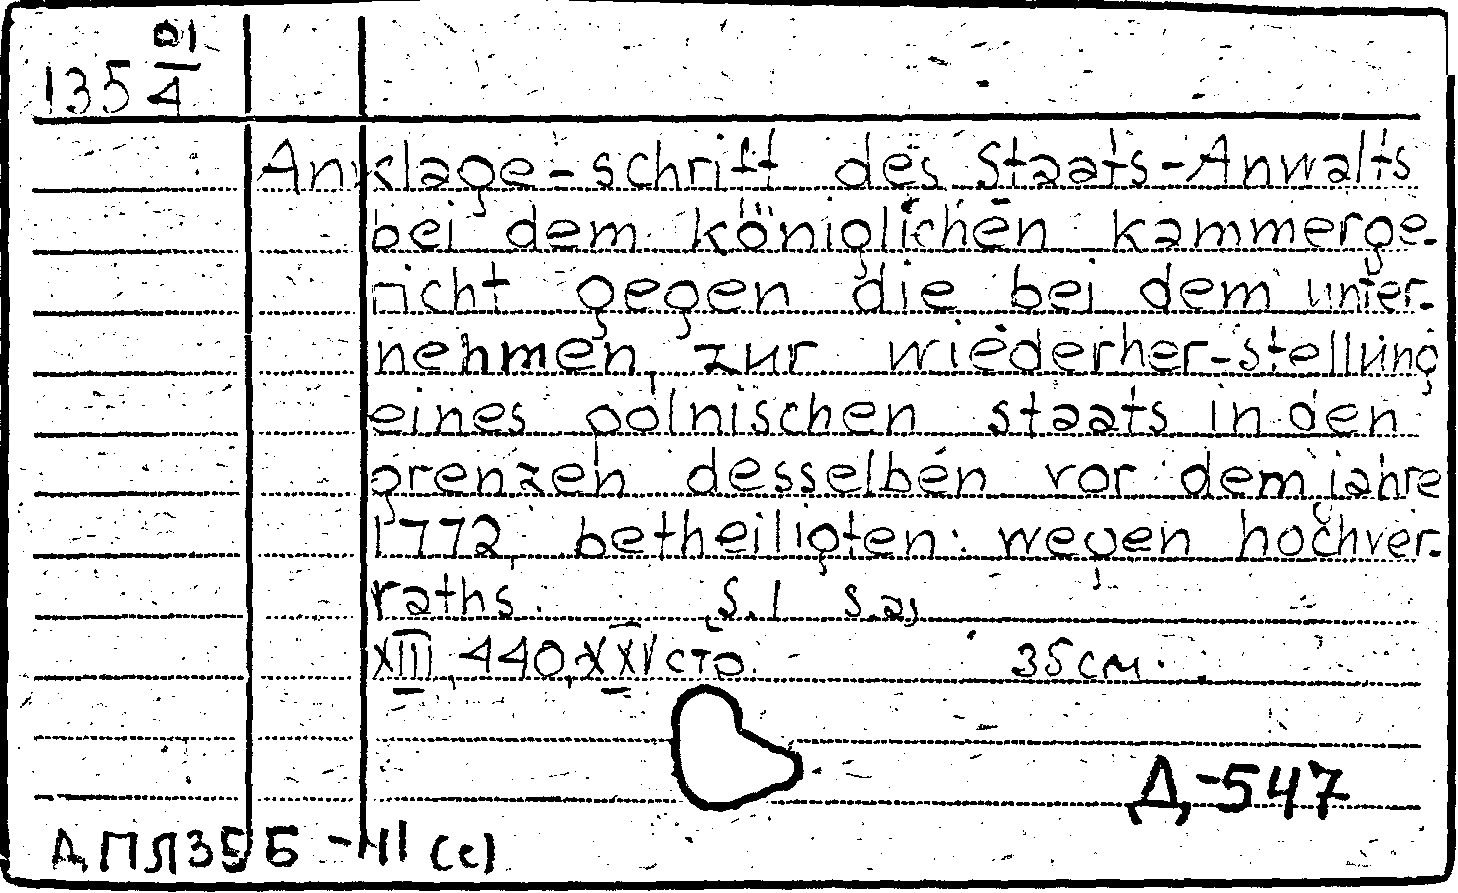 135 01/4
Anklage-schrift des Staats-Anwalts
bei dem königlichen kammerge-
richt gegen die bei dem unter-
nehmen zur wiederher-stellung
eines polnischen staats in den
grenzen desselben vor dem jahre
1772 betheiligten: wegen hochver-
raths. S.l s.a,
XIII, 440, XXV стр. 35см.
Д-547